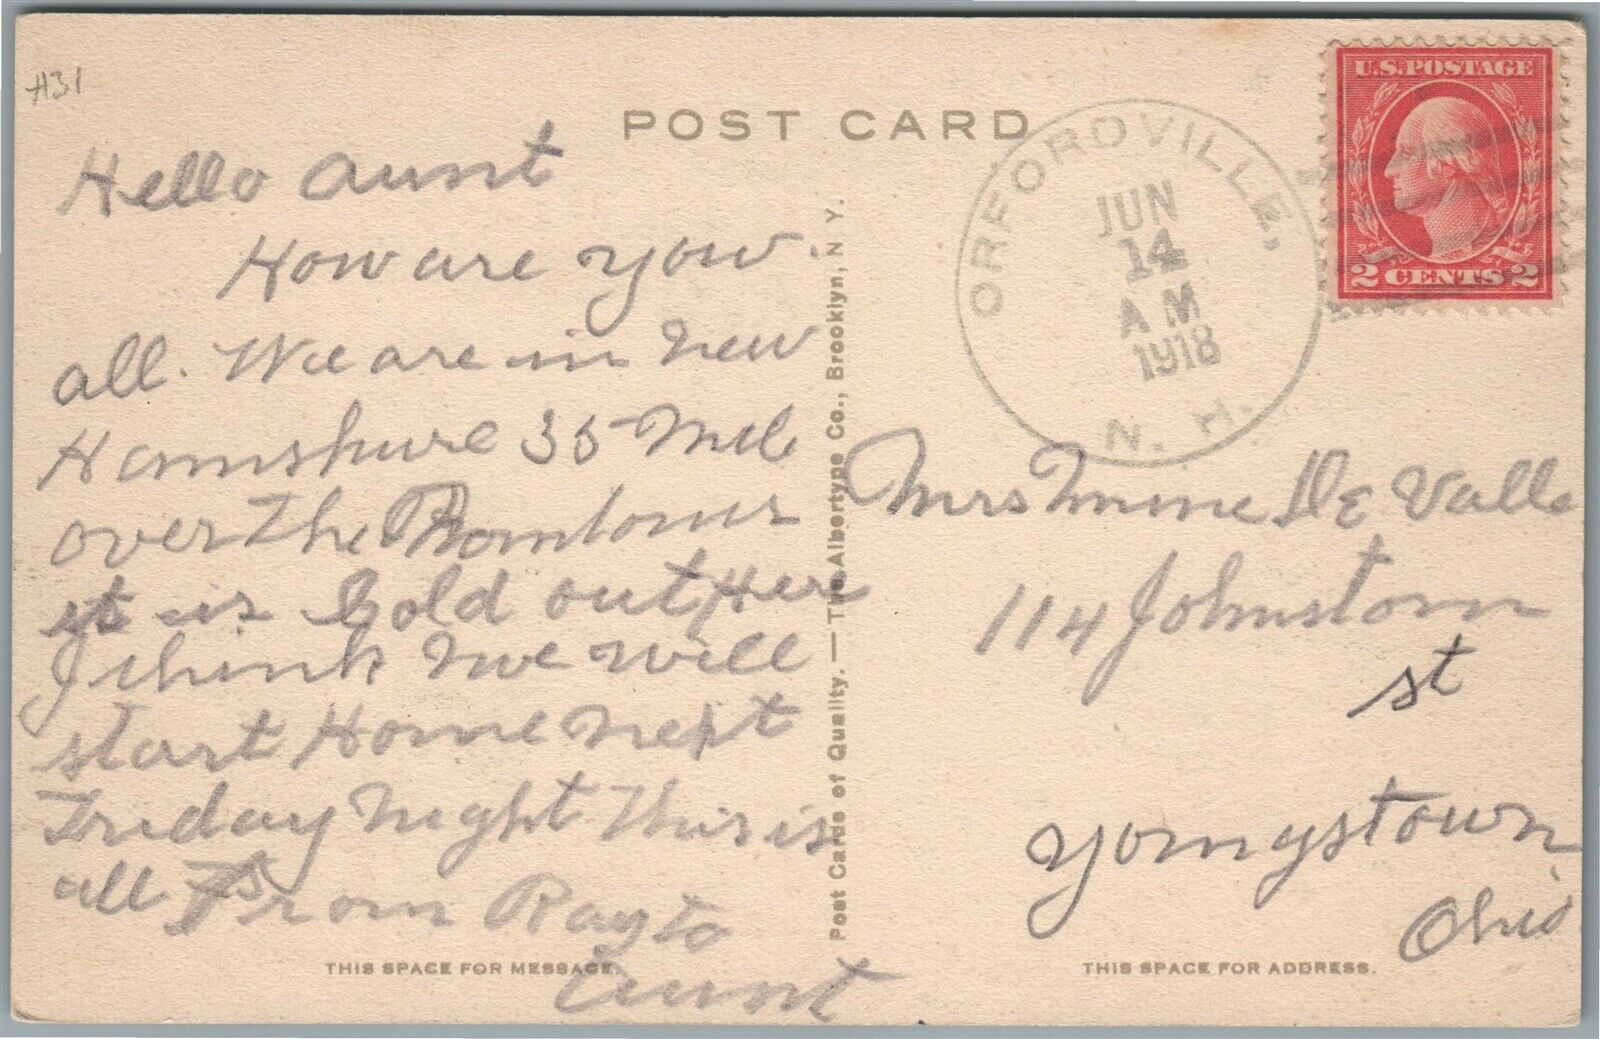 #31
POST CARD
ORFORDVILLE,
JUN
14
AM
1918
N. H.
U.S. POSTAGE
2 CENTS 2
Hello Aunt
How are you
all. We are in New
Hamshire 35 Mile
over the
it is Cold out Her
I think we will
start Home next
Friday Night This is
all From Ray to
Aunt
Post Cards of Quality. — The Albertype Co., Brooklyn, N. Y.
Mrs Minne De Valle
114 Johnston
st
Yomgstown
Ohio
THIS SPACE FOR MESSAGE.
THIS SPACE FOR ADDRESS.